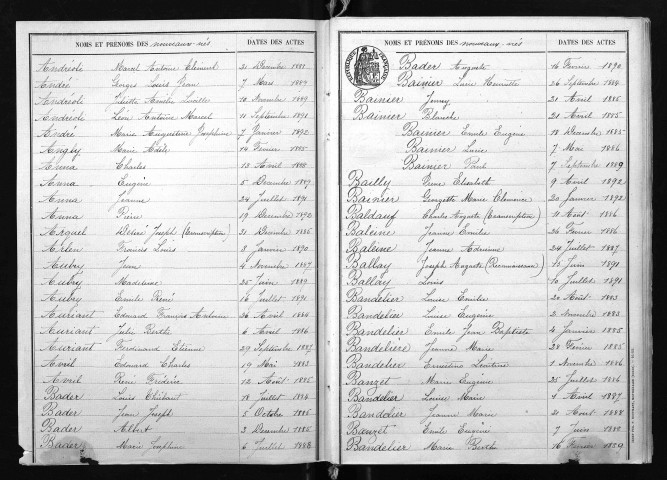 NOMS ET PRÉNOMS DES nouveaux-nés DATES DES ACTES
Andréole Marcel Antoine Clément 31 Décembre 1888
André Georges Louis Jean 7 Mars 1889
Andréole Juliette Amélie Lucille 10 Novembre 1889
Andréole Léon Antoine Marcel 11 Septembre 1891
André Marie Augustina Joséphine 7 Janvier 1892
Angly Marie Adèle 14 Février 1885
Anna Charles 13 Avril 1888
Anna Eugène 5 Décembre 1889
Anna Jeanne 24 Juillet 1891
Anna Pierre 19 Décembre 1892
Aaquel Désiré Joseph 31 Décembre 1886
Arlen Francis Louis 8 Janvier 1890
Aubry Jean 4 Novembre 1887
Aubry Madeleine 25 Juin 1889
Aubry Emile René 16 Juillet 1891
Auriant Edouard François Antoine 26 Avril 1884
Auriant Julie Berthe 6 Avril 1886
Auriant Ferdinand Etienne 29 Septembre 1887
Avril Edouard Charles 19 Mai 1883
Avril René Frédéric 12 Août 1885
Bader Louis Thiébaut 18 Juillet 1884
Bader Jean Joseph 5 Octobre 1885
Bader Albert 3 Décembre 1885
Bader Marie Joséphine 6 Juillet 1888
NOMS ET PRÉNOMS DES nouveaux-nés DATES DES ACTES
Bader Auguste 16 Février 1890
Bainier Lucie Henriette 26 Septembre 1884
Bainier Jenny 21 Avril 1885
Bainier Blanche 21 Avril 1885
Bainier Emile Eugène 18 Décembre 1885
Bainier Lucie 7 Mai 1886
Bainier Paul 7 Septembre 1889
Bailly René Elisabeth 9 Avril 1892
Bainier Georgette Marie Clémence 20 Janvier 1892
Baldauf Charles Auguste 11 Août 1886
Baleine Jeanne Emilie 26 Février 1886
Baleine Jeanne Adrienne 24 Juillet 1887
Ballay Joseph Auguste (Reconnaissance) 10 Juin 1891
Ballay Louis 10 Juillet 1891
Bandelier Louise Emilie 20 Août 1883
Bandelier Louise Eugénie 2 Novembre 1883
Bandelier Emile Jean Baptiste 4 Janvier 1885
Bandelier Jeanne Marie 28 Février 1885
Bandelier Ernestine Léontine 1 Novembre 1886
Banzet Marie Eugénie 25 Juillet 1886
Bandelier Louise Marie 1 Avril 1887
Bandelier Jeanne Marie 31 Août 1888
Banzet Emile Eugène 7 Juin 1888
Bandelier Marie Berthe 16 Février 1889